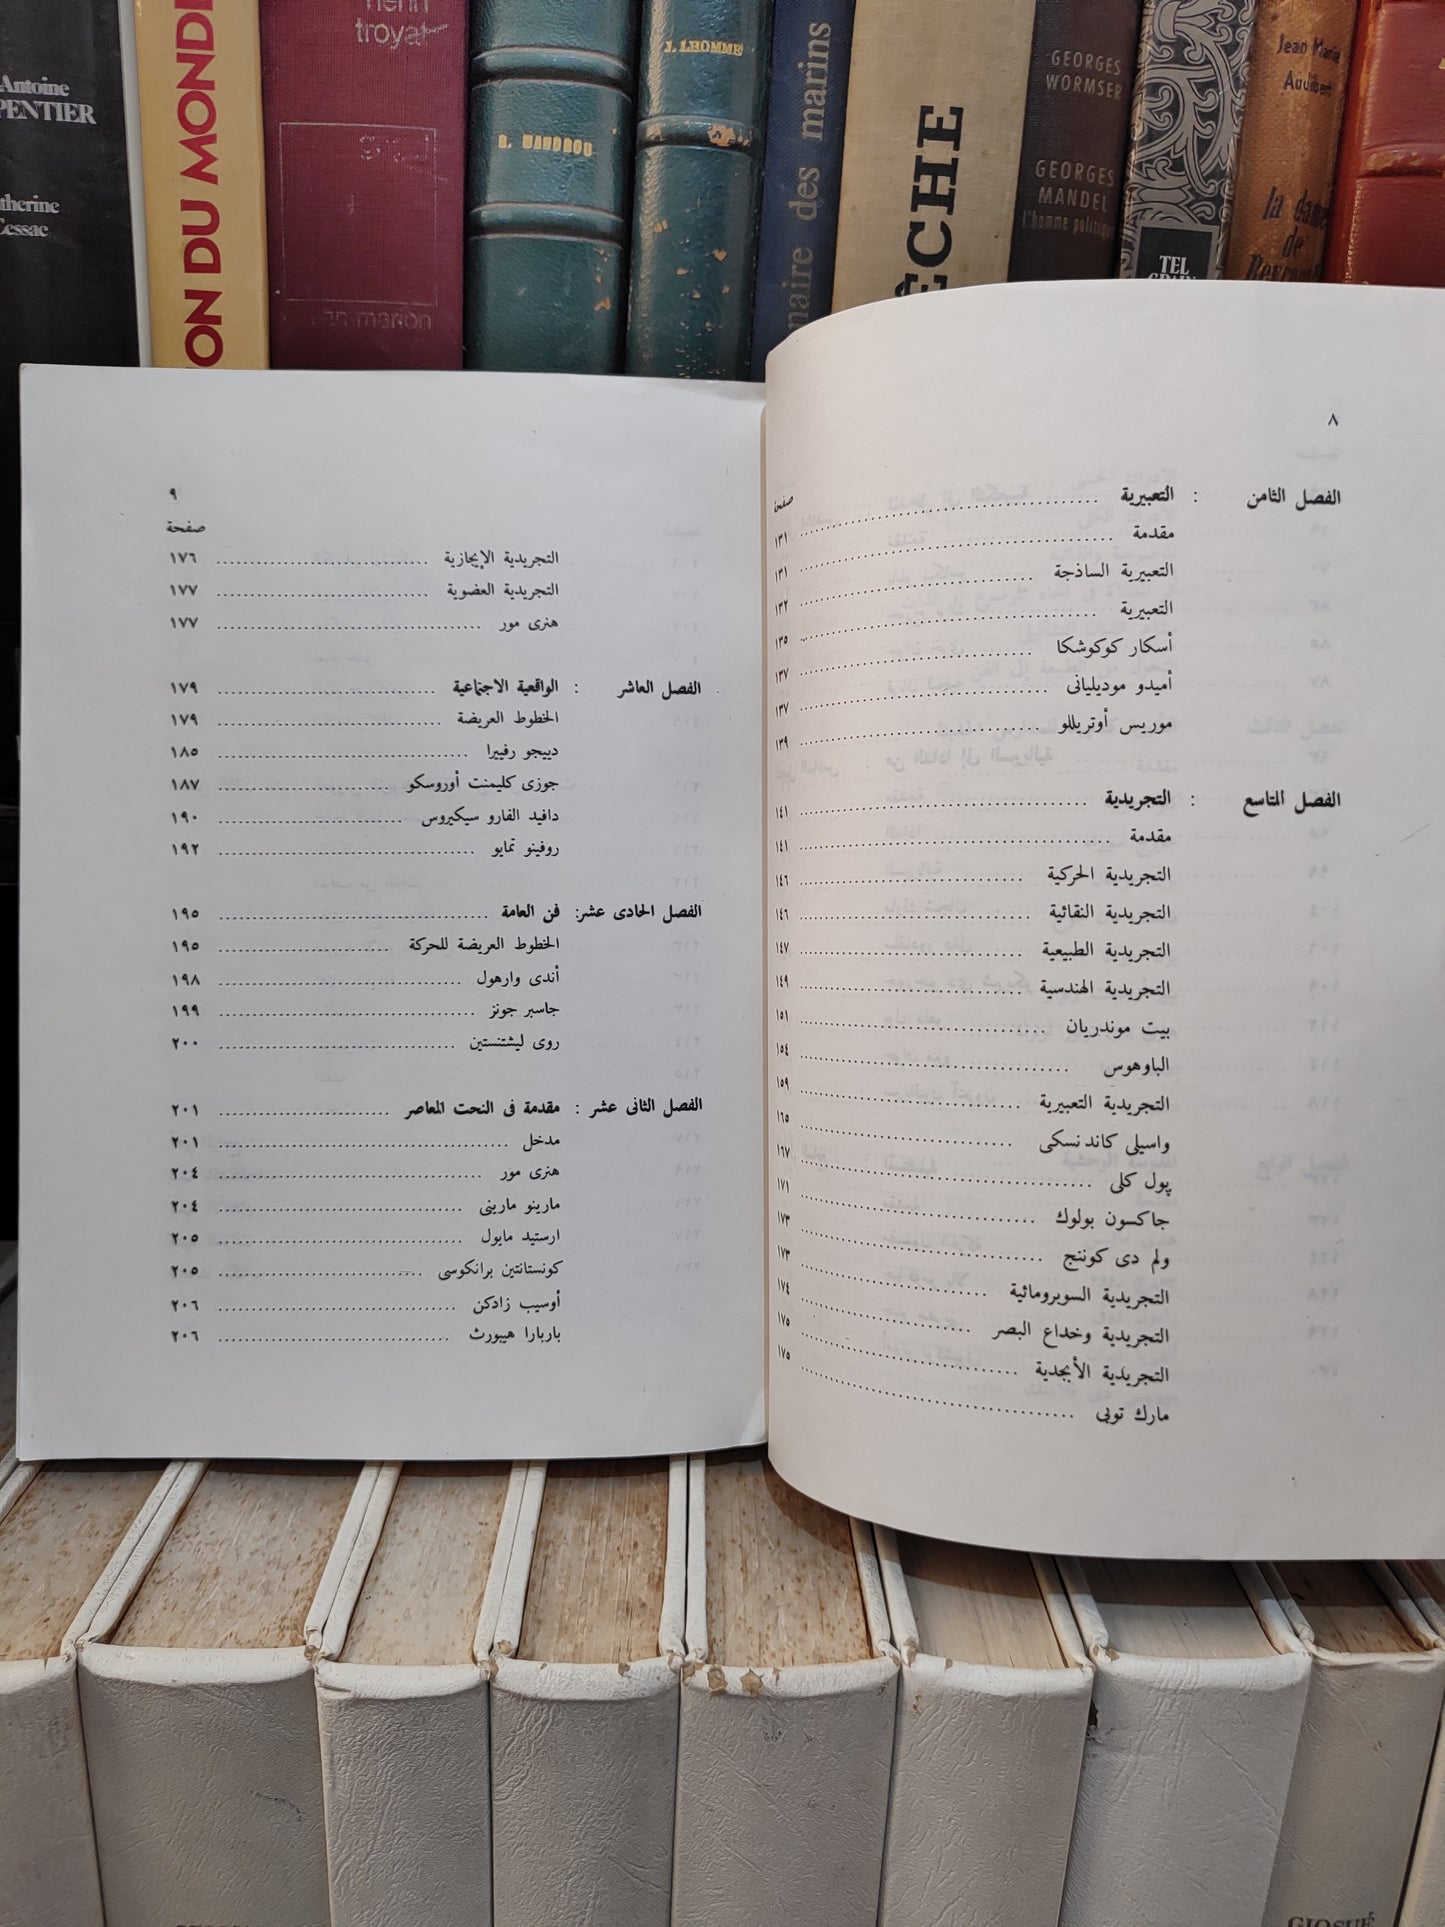 henri
troyat
Antoine
PENTIER
therine
Cessac
ON DU MONDE
flammarion
R. MANDROU
J. LHOMME
naire des marins
ÈCHE
GEORGES
WORMSER
GEORGES
MANDEL
l'homme politique
TEL
Jean Marie
Audibert
la dame
de
٨
صفحة
الفصل الثامن : التعبيرية ........ ١٣١
مقدمة ........ ١٣١
التعبيرية الساذجة ........ ١٣٢
التعبيرية ........ ١٣٥
أسكار كوكوشكا ........ ١٣٧
أميدو موديليانى ........ ١٣٧
موريس أوتريللو ........ ١٣٩
الفصل التاسع : التجريدية ........ ١٤١
مقدمة ........ ١٤١
التجريدية الحركية ........ ١٤٦
التجريدية النقائية ........ ١٤٦
التجريدية الطبيعية ........ ١٤٧
التجريدية الهندسية ........ ١٤٩
بيت موندريان ........ ١٥١
الباوهوس ........ ١٥٤
التجريدية التعبيرية ........ ١٥٩
واسيلى كاندنسكى ........ ١٦٥
پول كلى ........ ١٦٧
جاكسون بولوك ........ ١٧١
ولم دى كوننج ........ ١٧٣
التجريدية السوبرومائية ........ ١٧٣
التجريدية وخداع البصر ........ ١٧٤
التجريدية الأبجدية ........ ١٧٥
مارك توبى ........ ١٧٥
٩
صفحة
التجريدية الإيجازية ........ ١٧٦
التجريدية العضوية ........ ١٧٧
هنرى مور ........ ١٧٧
الفصل العاشر : الواقعية الاجتماعية ........ ١٧٩
الخطوط العريضة ........ ١٧٩
دييجو رفييرا ........ ١٨٥
جوزى كليمنت أوروسكو ........ ١٨٧
دافيد الفارو سيكيروس ........ ١٩٠
روفينو تمايو ........ ١٩٢
الفصل الحادى عشر: فن العامة ........ ١٩٥
الخطوط العريضة للحركة ........ ١٩٥
أندى وارهول ........ ١٩٨
جاسبر جونز ........ ١٩٩
روى ليشتنستين ........ ٢٠٠
الفصل الثانى عشر : مقدمة فى النحت المعاصر ........ ٢٠١
مدخل ........ ٢٠١
هنرى مور ........ ٢٠٤
مارينو مارينى ........ ٢٠٤
ارستيد مايول ........ ٢٠٥
كونستانتين برانكوسى ........ ٢٠٥
أوسيب زادكن ........ ٢٠٦
باربارا هيبورث ........ ٢٠٦
GIOSUÈ